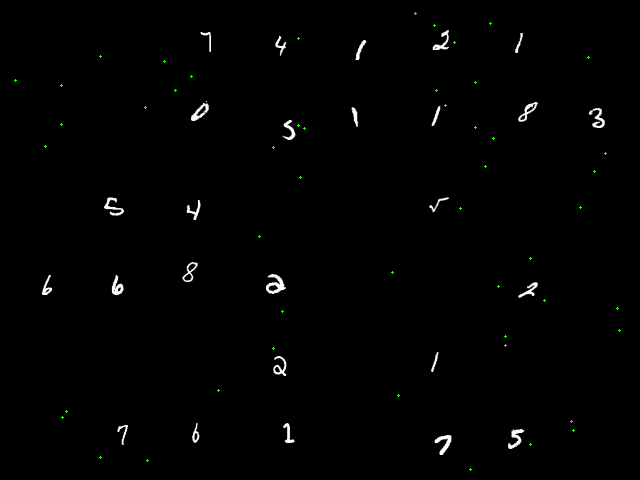 7 4 1 2 1
0 5 1 1 8 3
5 4 √
6 6 8 2 2
2 1
7 6 1 7 5